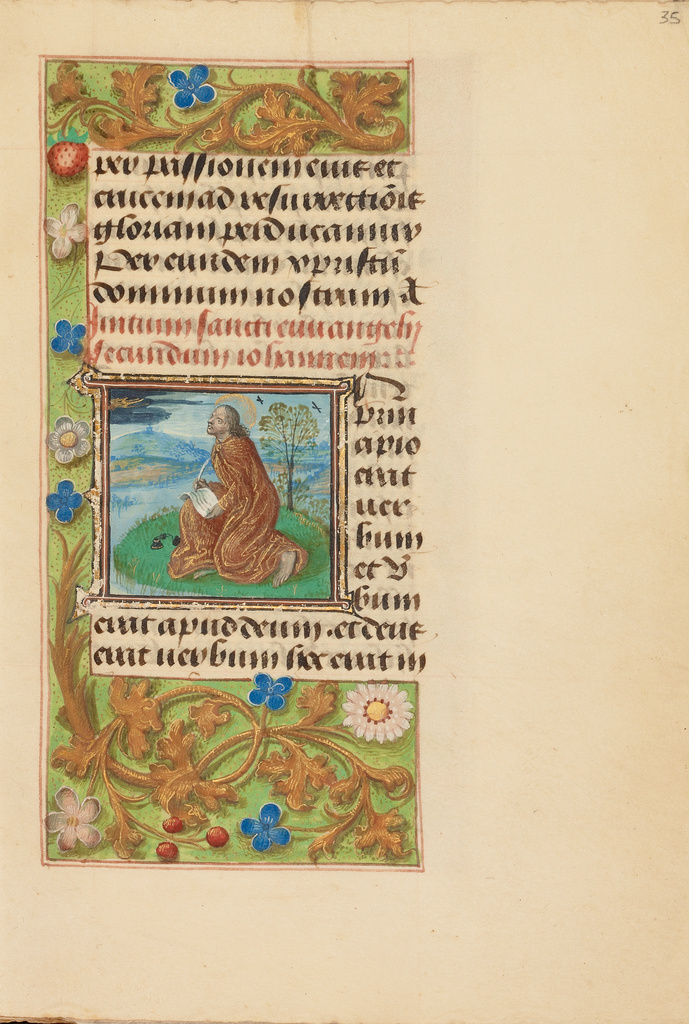 35
per passionem eius et
crucem ad resurrectiōis
gloriam perducamur
Per eundem xpristū
dominum nostrum A
Initium sancti euuangelij
secundum iohannem
In
prin
cipio
erat
uer
bum
et v
bum
erat apud deum . et deus
erat uerbum hoc erat in